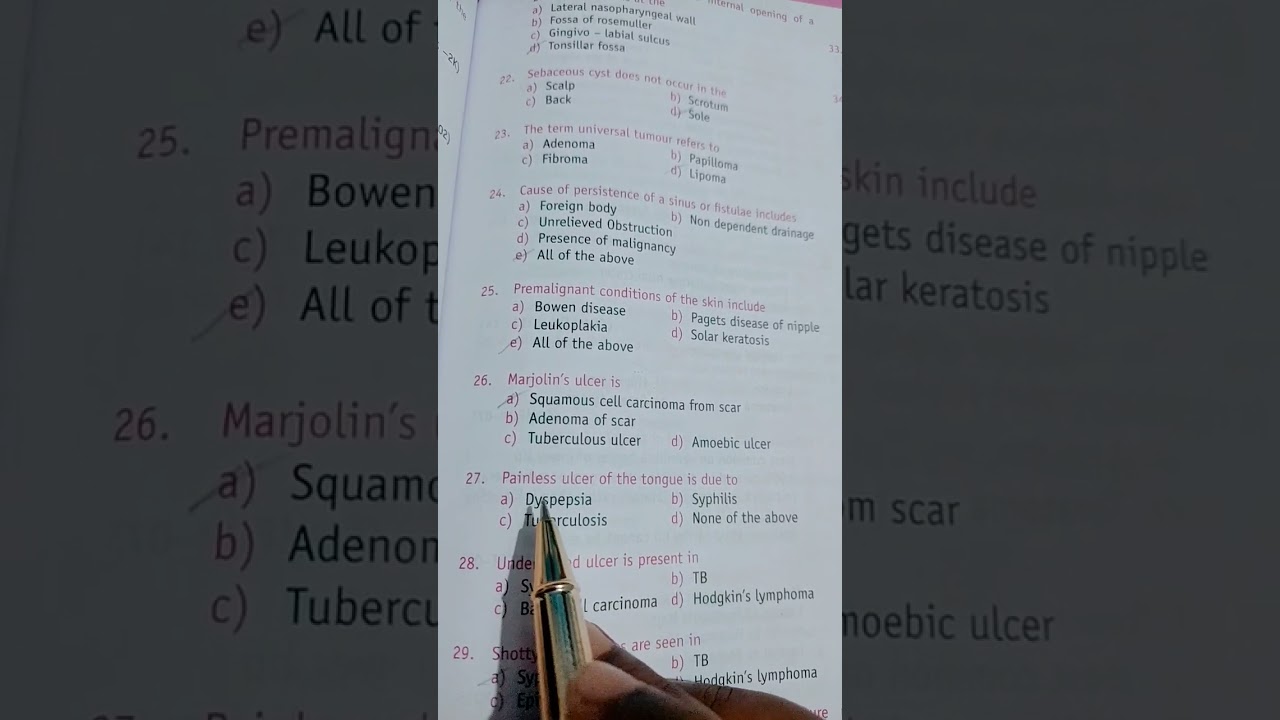 nternal opening of a
a) Lateral nasopharyngeal wall
b) Fossa of rosemuller
c) Gingivo – labial sulcus
d) Tonsillar fossa
33.
22. Sebaceous cyst does not occur in the
a) Scalp b) Scrotum
c) Back d) Sole
23. The term universal tumour refers to
a) Adenoma b) Papilloma
c) Fibroma d) Lipoma
24. Cause of persistence of a sinus or fistulae includes
a) Foreign body b) Non dependent drainage
c) Unrelieved Obstruction
d) Presence of malignancy
e) All of the above
25. Premalignant conditions of the skin include
a) Bowen disease b) Pagets disease of nipple
c) Leukoplakia d) Solar keratosis
e) All of the above
26. Marjolin's ulcer is
a) Squamous cell carcinoma from scar
b) Adenoma of scar
c) Tuberculous ulcer d) Amoebic ulcer
27. Painless ulcer of the tongue is due to
a) Dyspepsia b) Syphilis
c) Tuberculosis d) None of the above
28. ulcer is present in
a) b) TB
c) carcinoma d) Hodgkin's lymphoma
29. Shotty are seen in
a) b) TB
Hodgkin's lymphoma
c)